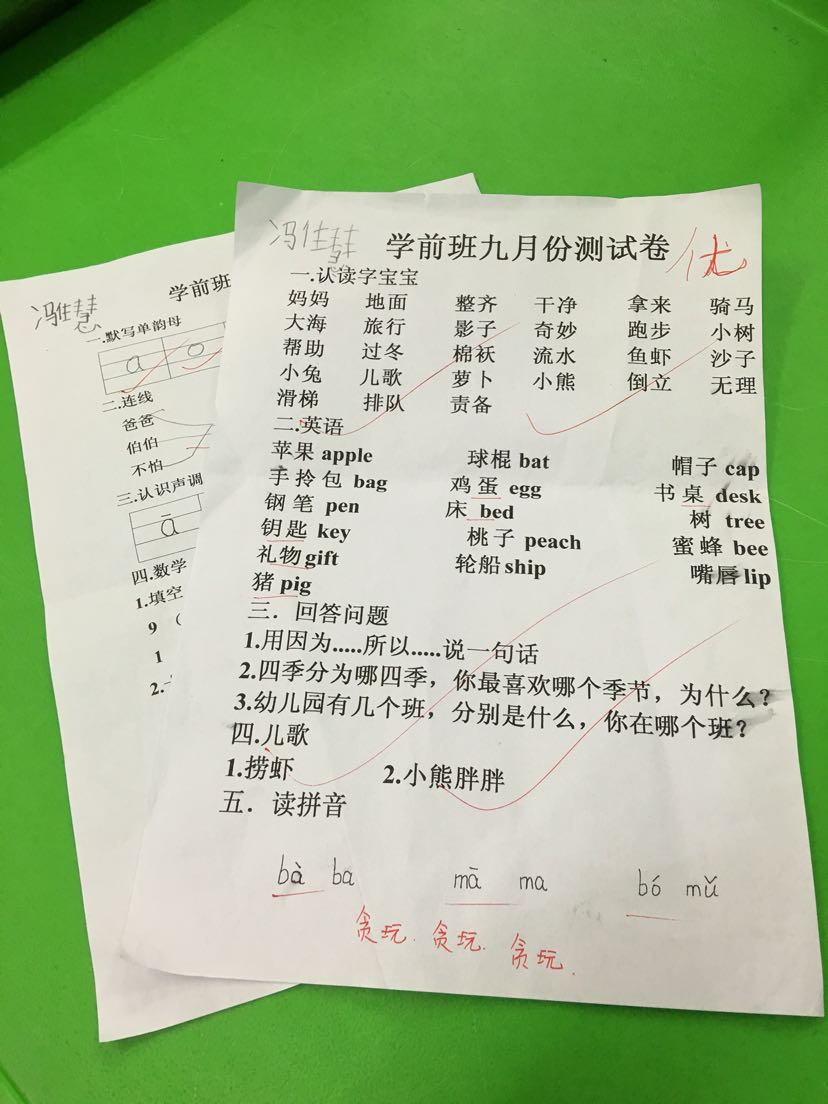 冯佳慧 学前班九月份测试卷 优
一.认读字宝宝
妈妈 地面 整齐 干净 拿来 骑马
大海 旅行 影子 奇妙 跑步 小树
帮助 过冬 棉袄 流水 鱼虾 沙子
小兔 儿歌 萝卜 小熊 倒立 无理
滑梯 排队 责备
二.英语
苹果 apple 球棍 bat 帽子 cap
手拎包 bag 鸡蛋 egg 书桌 desk
钢笔 pen 床 bed 树 tree
钥匙 key 桃子 peach 蜜蜂 bee
礼物 gift 轮船 ship 嘴唇 lip
猪 pig
三．回答问题
1.用因为.....所以.....说一句话
2.四季分为哪四季，你最喜欢哪个季节，为什么？
3.幼儿园有几个班，分别是什么，你在哪个班？
四.儿歌
1.捞虾 2.小熊胖胖
五．读拼音
bà ba mā ma bó mǔ
贪玩. 贪玩. 贪玩.
冯佳慧 学前班
一.默写单韵母
a o
二.连线
爸爸
伯伯
不怕
三.认识声调
ā
四.数学
1.填空
9 （
1
2.